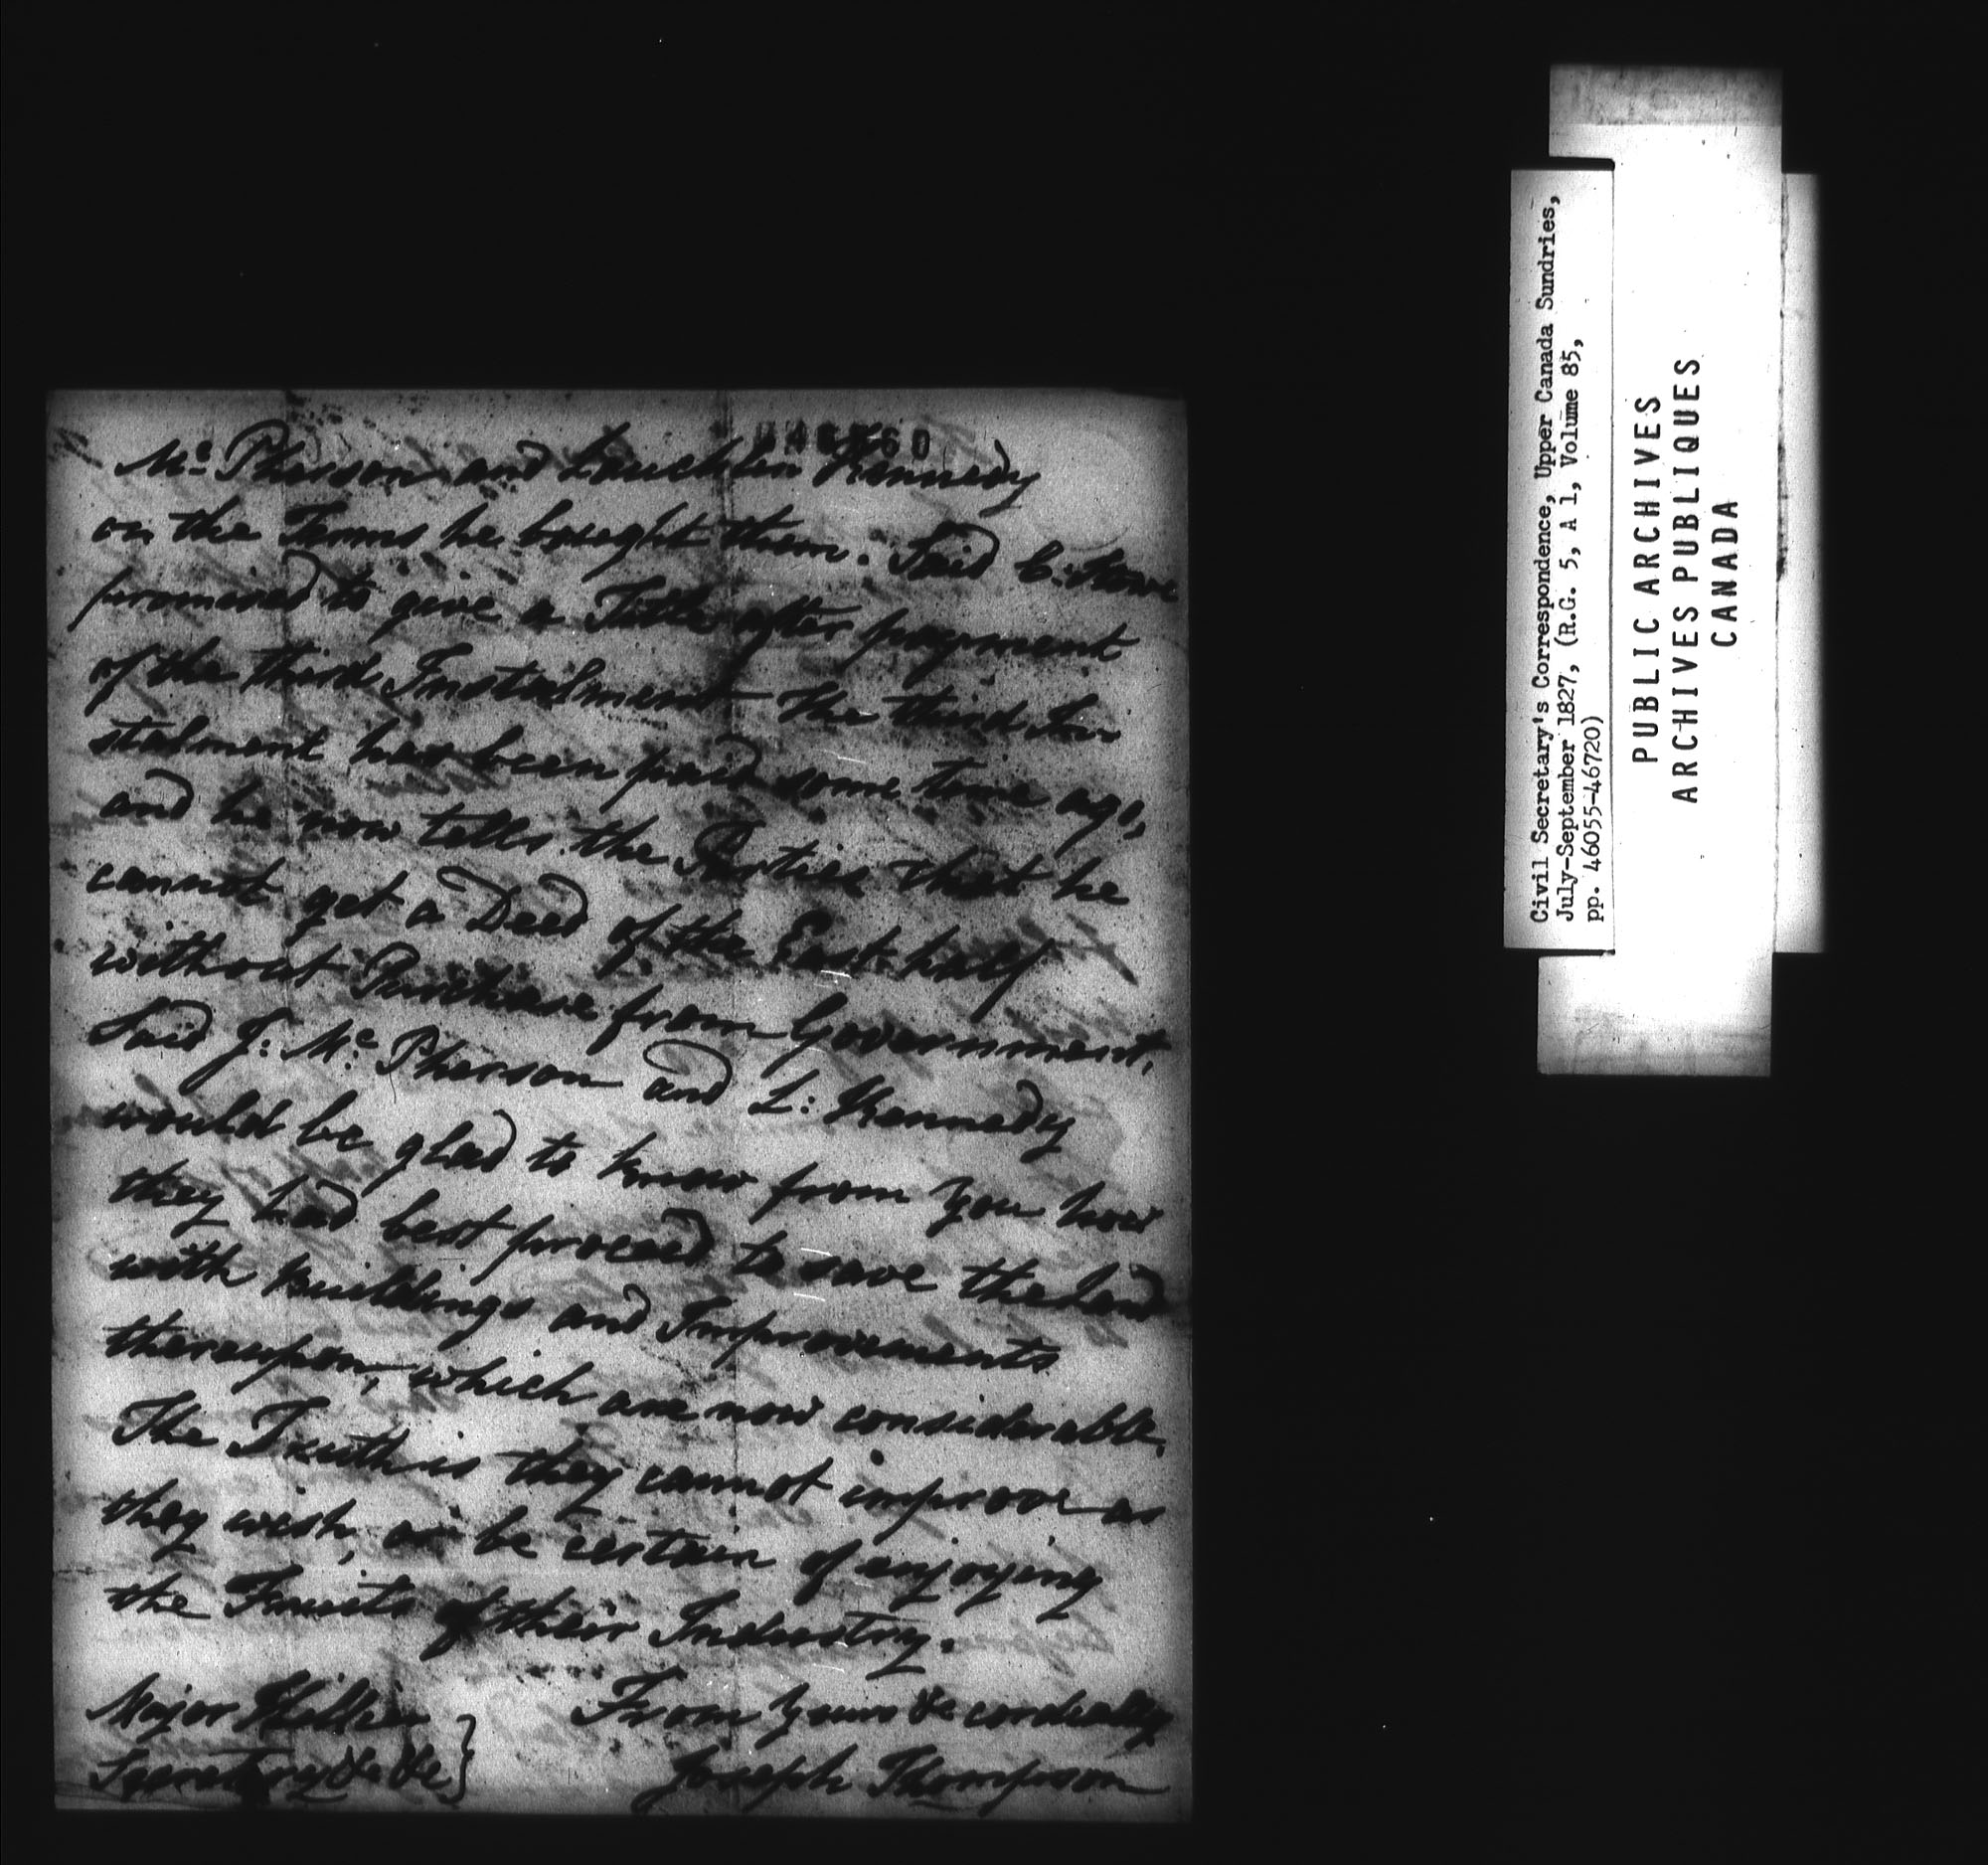 Mc Pherson and Lauchlin Kennedy
on the Terms he bought them. Said C:
promised to give a Title after payment
of the third Instalment the third In-
stalment has been paid some time ago,
and he now tells the Parties that he
cannot get a Deed of the East half
without Purchase from Government.
Said J: Mc Pherson and L: Kennedy
would be glad to know from you how
they had best proceed to save the Land
with Buildings and Improvements
thereupon, which are now considerable.
The Truth is they cannot improve as
they wish, or be certain of enjoying
the Fruits of their Industry.
From yours &c cordially
Joseph Thompson
Major Hillier
Secretary &c &c
Civil Secretary's Correspondence, Upper Canada Sundries,
July-September 1827, (R.G. 5, A 1, Volume 85,
pp. 46055-46720)
PUBLIC ARCHIVES
ARCHIVES PUBLIQUES
CANADA